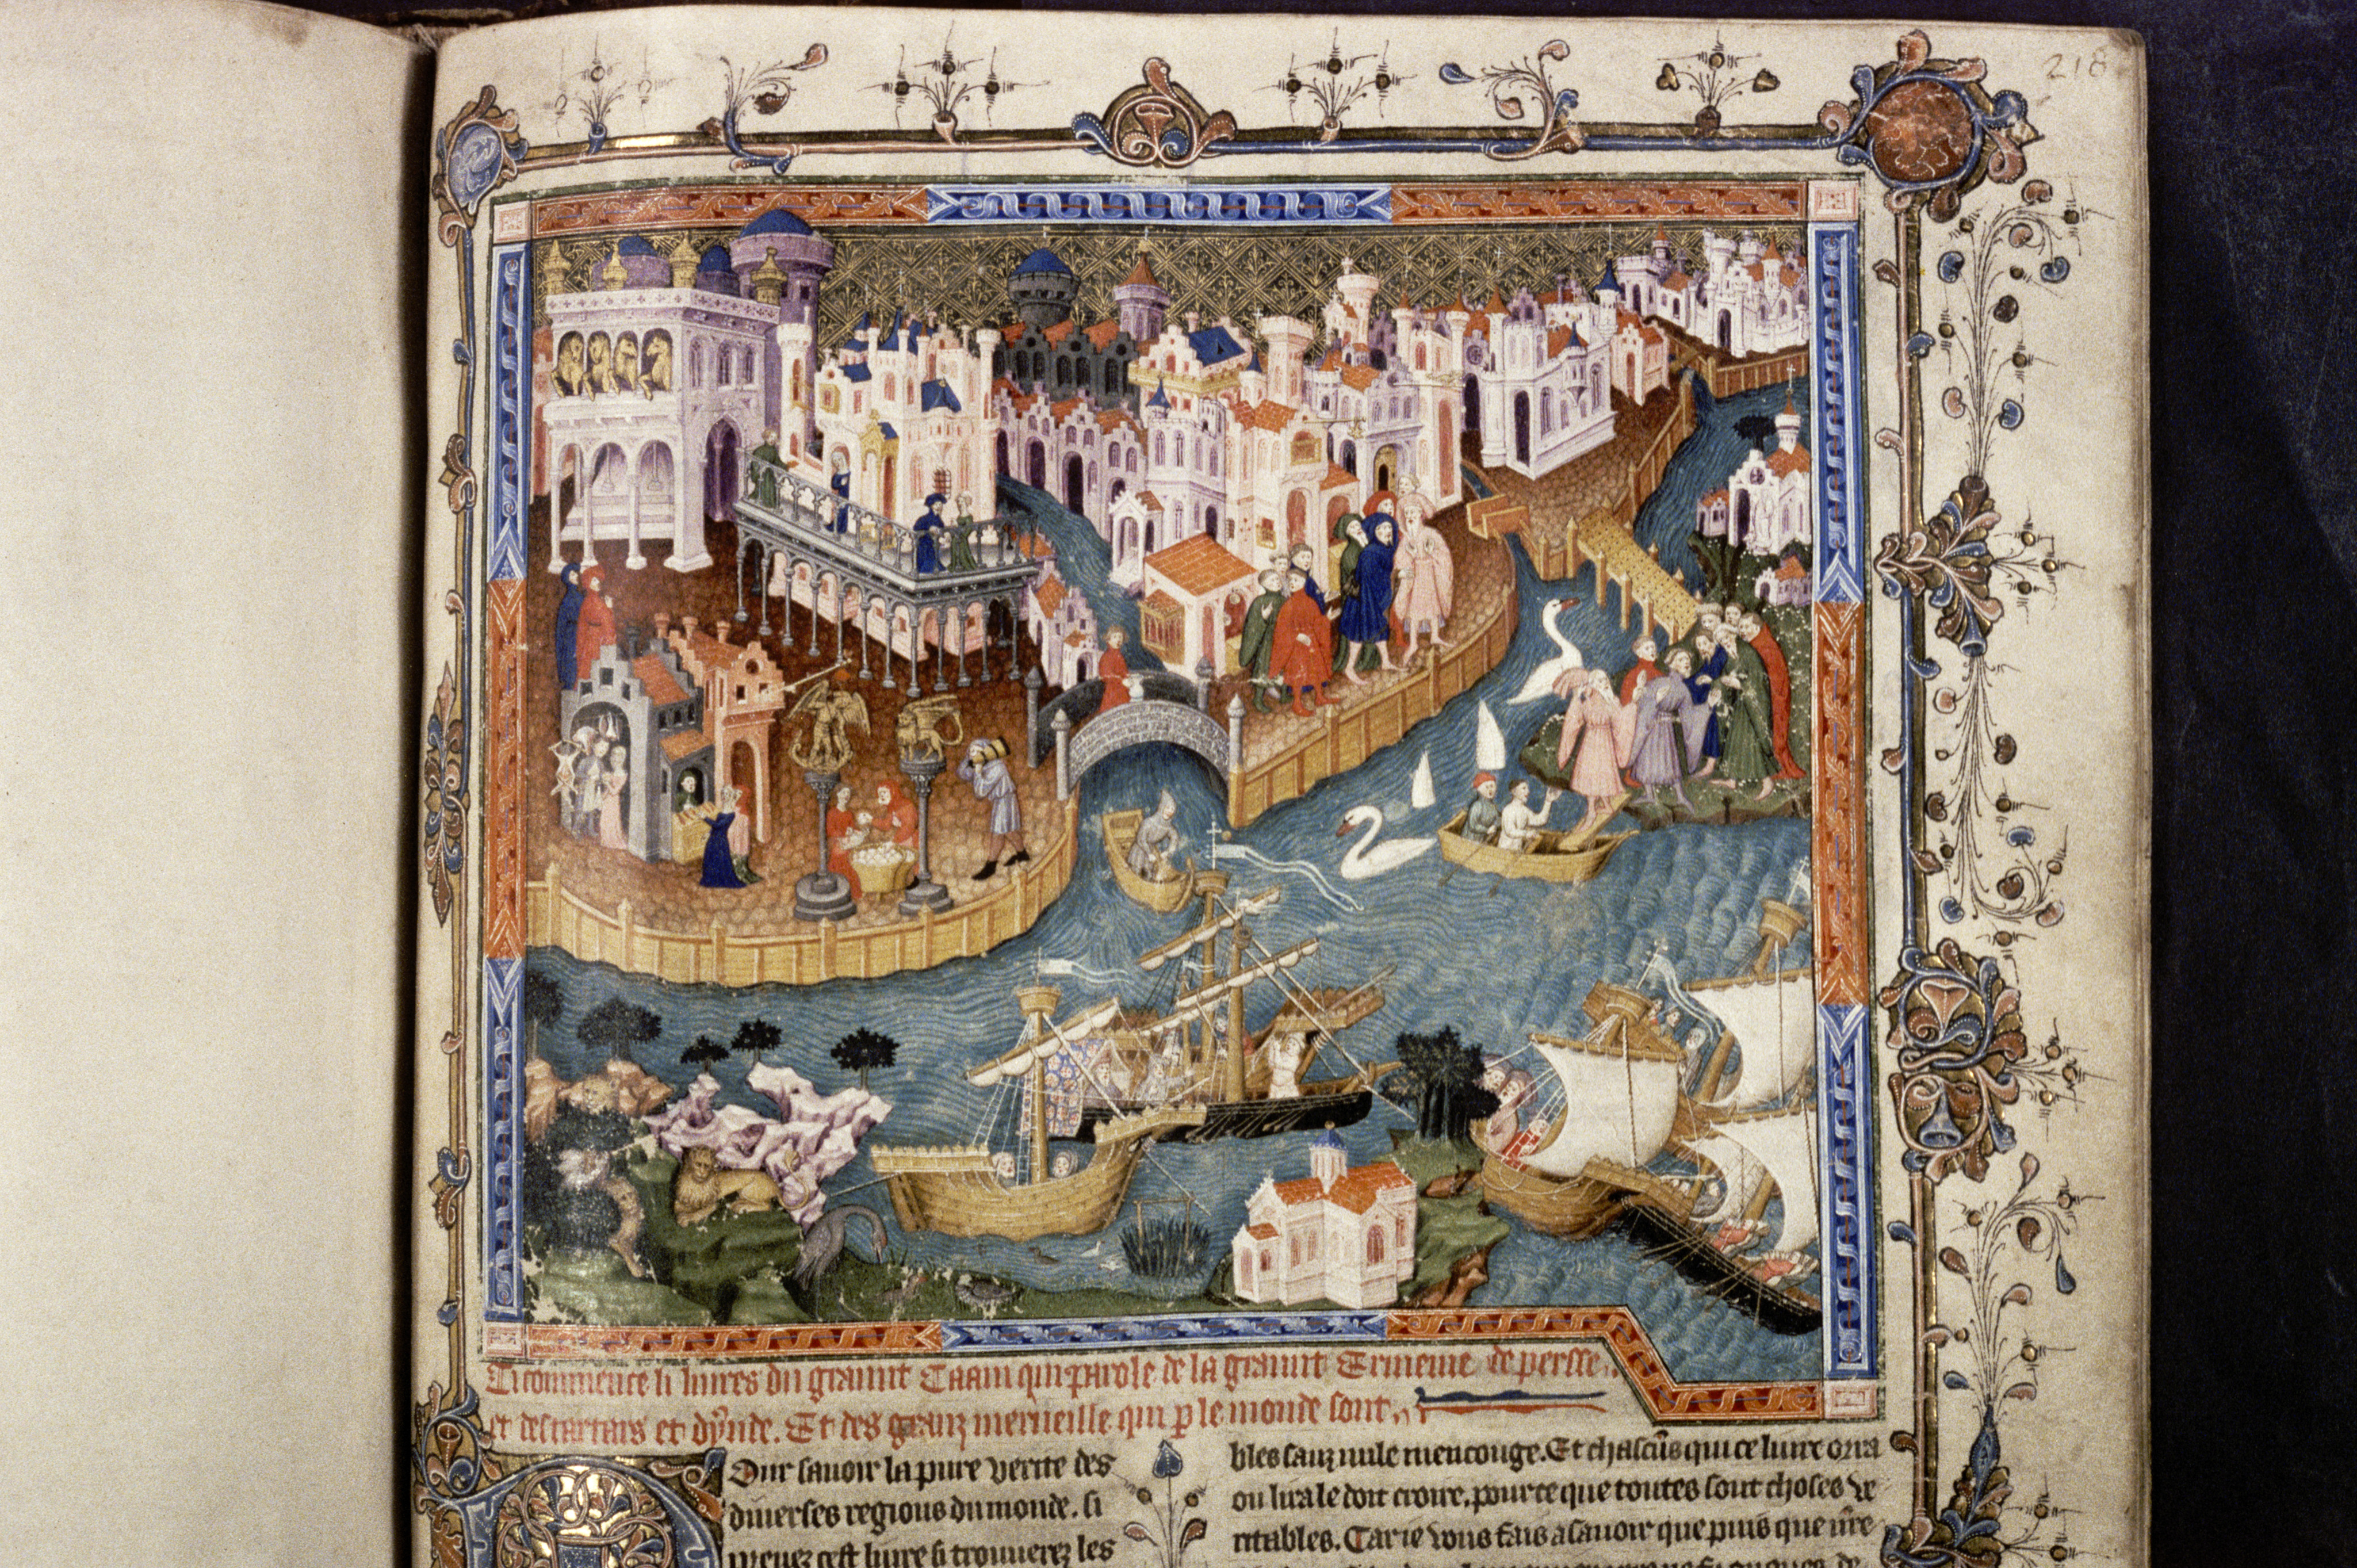 218
Ci commence li liures du graunt Caam qui parole de la graunt Ermenie de persse.
et des tartars et dynde. Et des granz merueille qui p le monde sont.
Our sauoir la pure verite des
diuerses regions du monde. si
prenez cest liure si trouuerez les
bles sanz nule mencouge. Et chascūs qui ce liure orra
ou lira le doit croire, pource que toutes sont choses ve
ritables. Car ie vous fais asauoir que puis que nr̄e